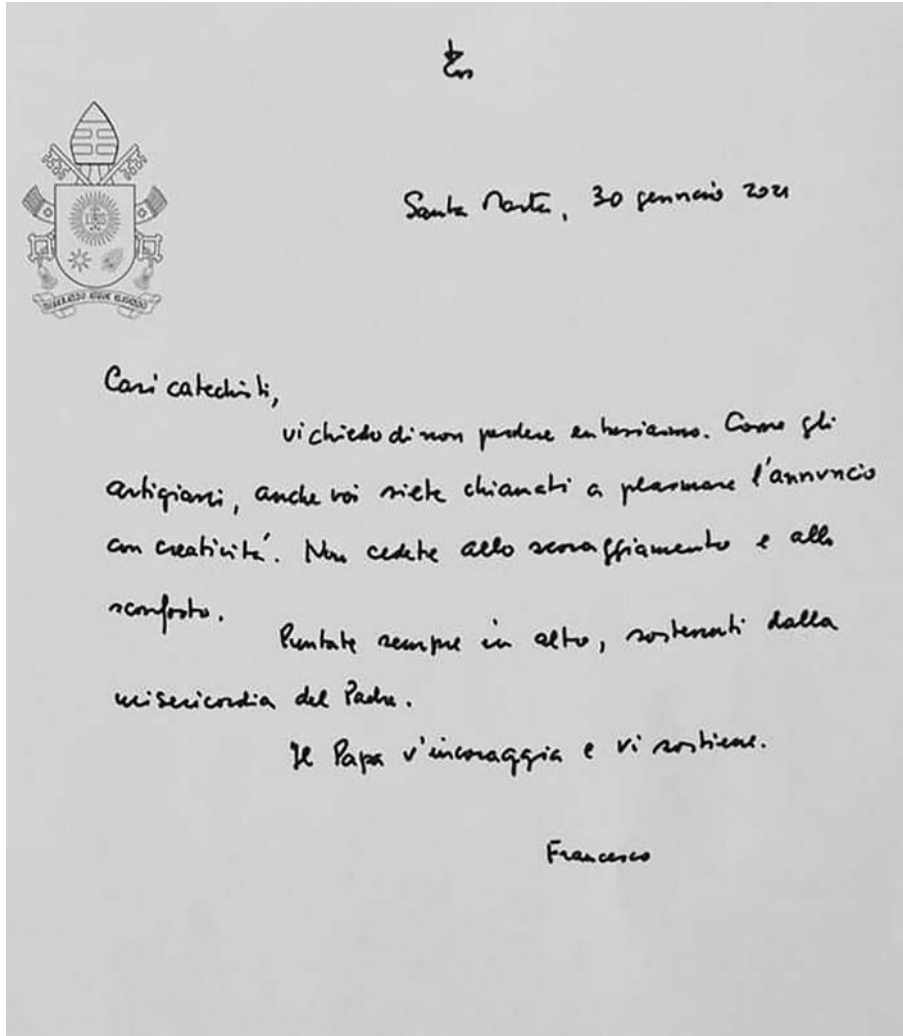 Santa Marta, 30 gennaio 2021
MISERANDO ATQUE ELIGENDO
Cari catechisti,
vi chiedo di non perdere entusiasmo. Come gli
artigiani, anche voi siete chiamati a plasmare l'annuncio
con creatività. Non cedete allo scoraggiamento e allo
sconforto.
Puntate sempre in alto, sostenuti dalla
misericordia del Padre.
Il Papa v'incoraggia e vi sostiene.
Francesco